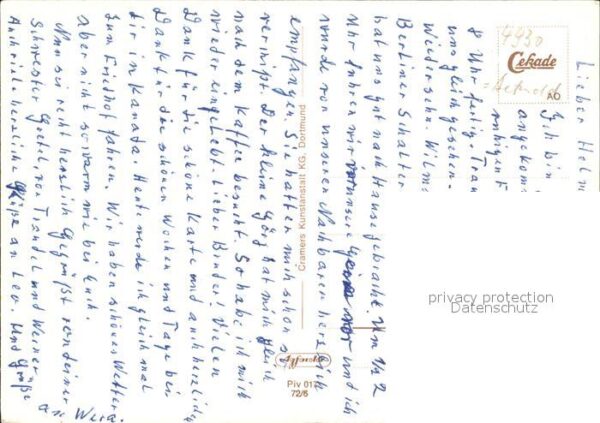 Lieber Helm
Ich bin
angekom
8 Uhr fertig Tran
uns gleich gesehen.
Wiedersehn. Wilm
Berliner Schalter
hat uns gut nach Hause gebracht. Um 1/2 2
Uhr fuhren wir vor und ich
wurde von unseren Nachbaren herzlich
empfangen. Sie hatten mich schon
vermisst. Der kleine Jörg hat mich gleich
nach dem Kaffee besucht. So habe ich mich
wieder eingelebt. Lieber Bruder! Vielen
Dank für die schöne Karte und auch herzlichen
Dank für die schönen Wochen und Tage bei
dir in Kanada. Heute werde ich gleich mal
zum Friedhof fahren. Wir haben schönes Wetter
aber nicht so warm wie bei Euch.
Nun sei recht herzlich Gegrüßt von deiner
Schwester Gretel, von Traudel und Werner
Auch viel herzliche Grüße an Leo und Grüße
an Wera.
4930
Detmold
Cekade
AO
Cramers Kunstanstalt KG, Dortmund
Piv 017
72/6
privacy protection
Datenschutz